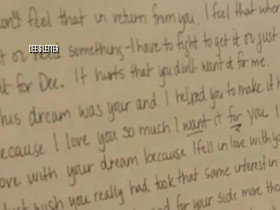 don't feel that in return from you. I feel that when
DEE'S LETTER
t or need something - I have to fight to get it or just
t for Dee. It hurts that you don't want it for me.
his dream was your and I helped you to make it h
ecause I love you so much I want it for you I
ove with your dream because I fell in love with yo
wish you really had took that same interest in
and for your side more tha